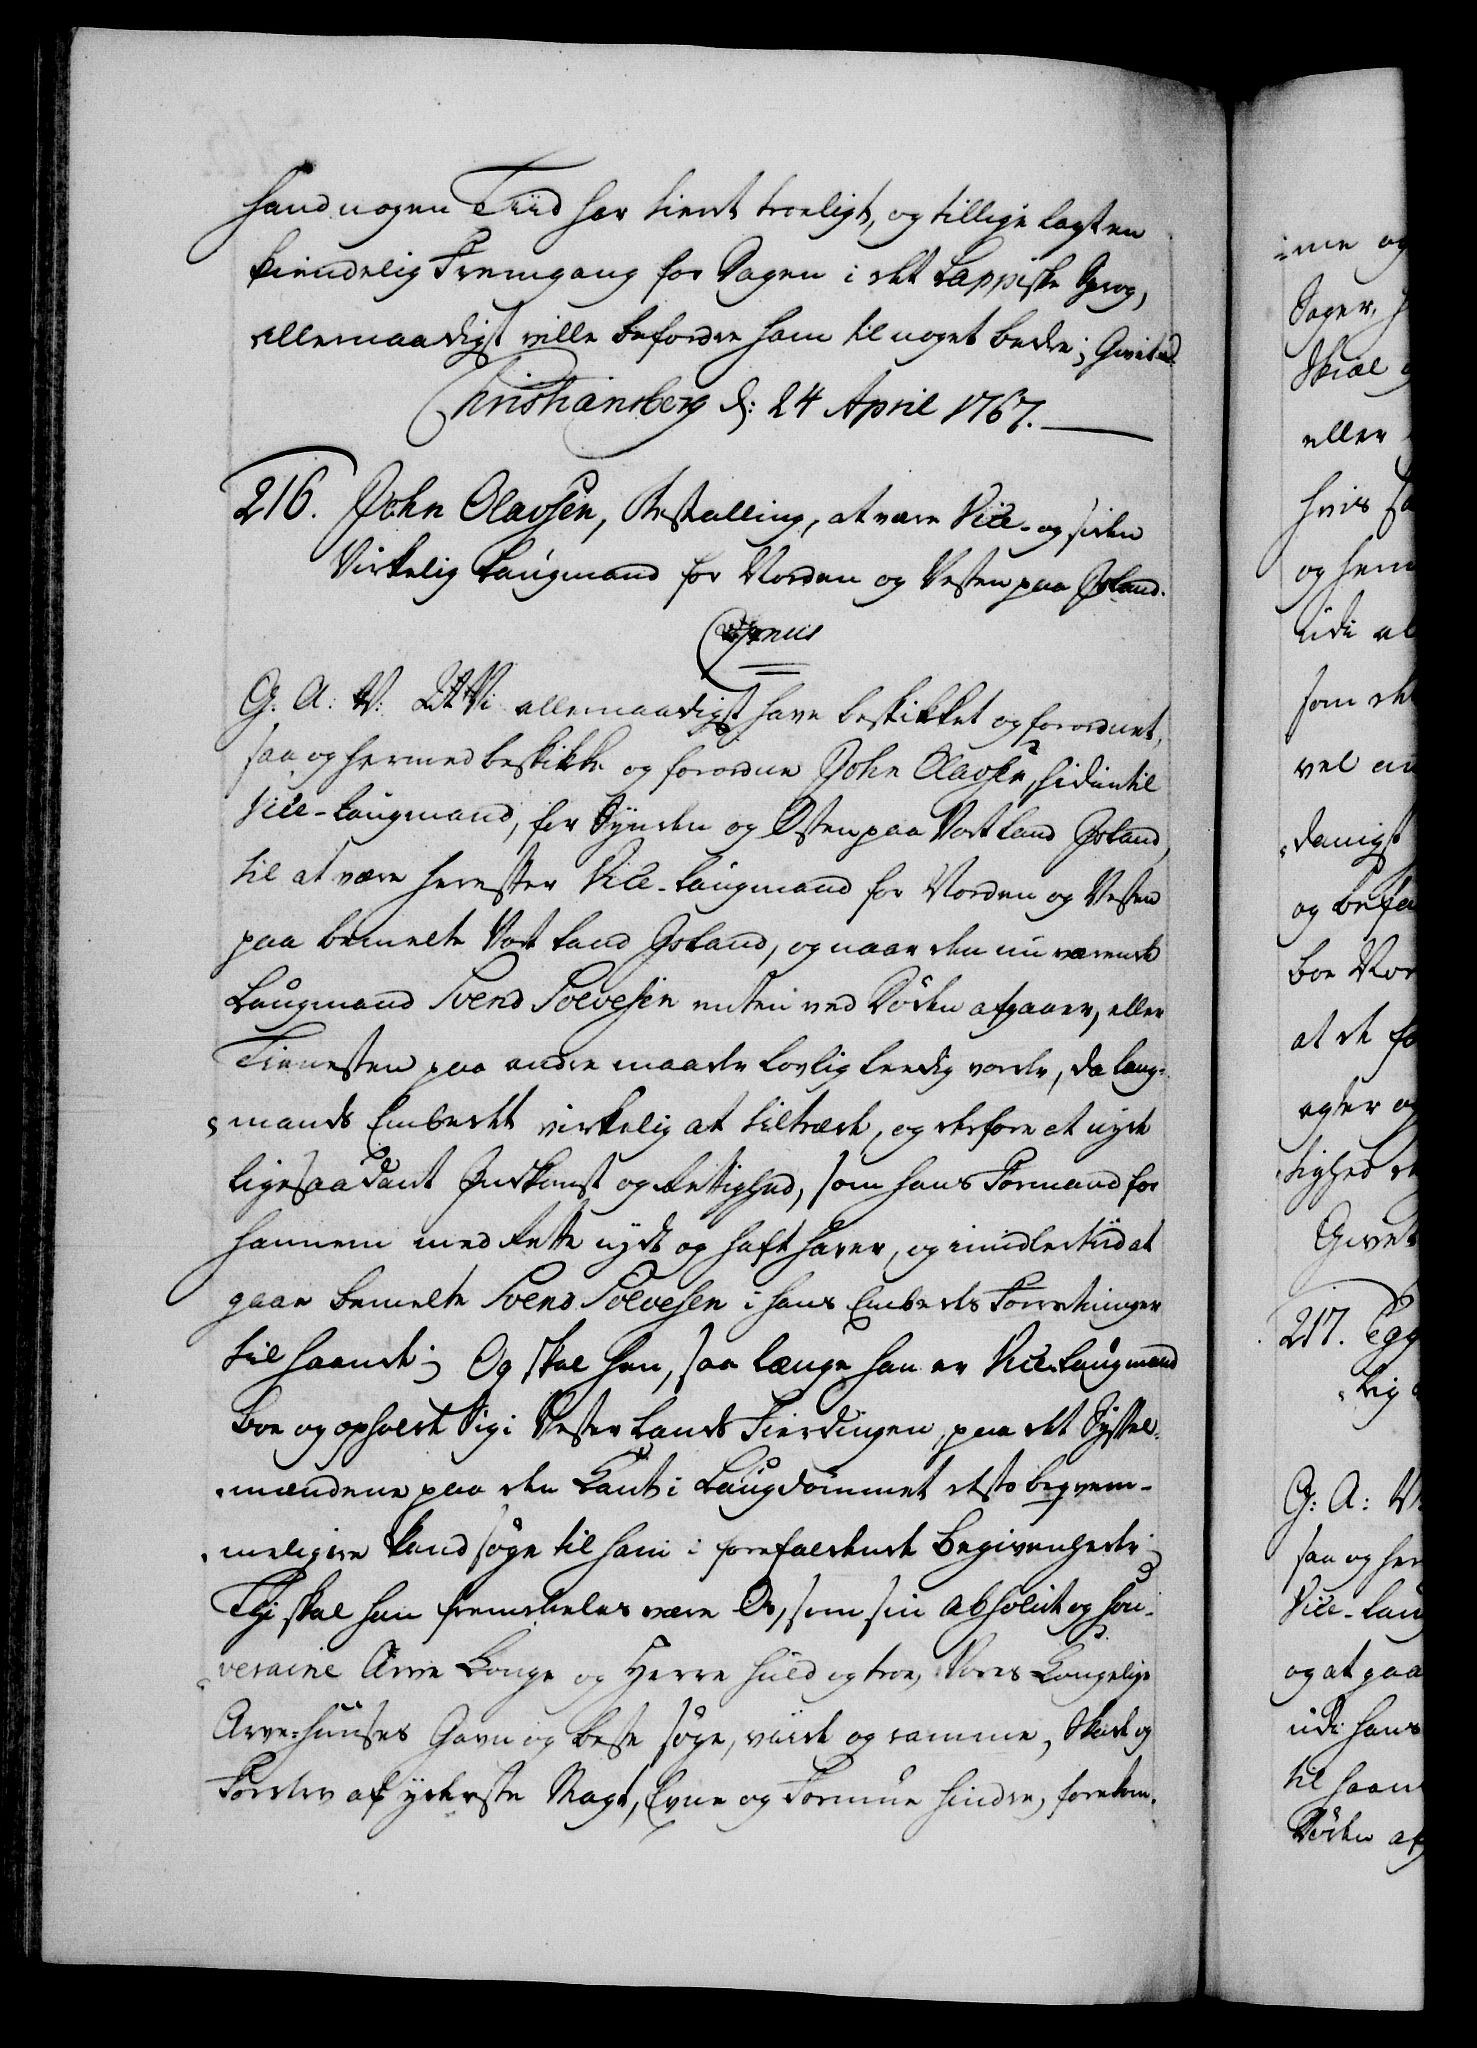 hand nogen Tiid har tient troeligt, og tillige lagt en
kiendelig Fremgang for Dagen i det Lappiske Sprog,
allernaadigst ville befordre ham til noget bedre; Givet ud
Christiansborg d: 24 April 1767.
216. John Olavsen, Bestalling, at være Vice- og siden
Virkelig Laugmand for Norden og Vesten paa Island.
G. A: V: At Vi allernaadigst have beskikket og forordnet,
saa og hermed beskikke og forordne John Olavsen, hidindtil
Vice-Laugmand, for Synden og Østen paa Vort Land Island,
til at være herefter Vice-Laugmand for Norden og Vesten
paa bemelte Vort Land Island, og naar den nu værende
Laugmand Svend Sølvesen enten ved Døden afgaaer, eller
Tienesten paa andre maader lovlig leedig vorde, da Laug-
mands Embedet virkelig at tiltræde, og derfore at nyde
ligesaadant Indkomst og Rettighed, som hans Formand for
hannem med Rette nydt og haft haver, og imidlertiid at
gaae bemelte Svend Sølvesen i hans Embeds Forretninger
til haande; Og skal han, saa længe han er Vice-Laugmand
boe og opholde sig i Vester Lands Fierdingen, paa det Syssel-
mændene paa den Kant i Laugdømmet desto beqvem-
meligere kand søge til ham i forefaldende Begivenheder;
Thi skal han fremdeles være Os, som sin absolut og sou-
veraine Arve Konge og Herre huld og troe, Vores Kongelige
Arve-Huuses Gavn og beste søge, viide og ramme, Skade og
Fordærv af yderste Magt, Evne og Formue hindre, forekom-
ine og
Sager, h
Skiæl
eller
hvis
og hem
udi al
som de
vel
danigst
og befa
boe Vor
at de
agter og
lighed
Givet
217. Egg
lig
G: A: V:
saa og her
Vice-Lau
og at gaa
udi hans
til haan
Døden af